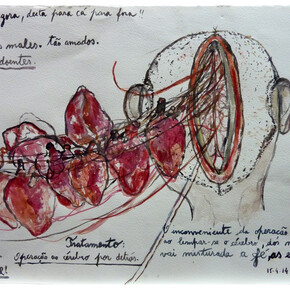 gora, deita para cá para fora!!
s males. tão amados.
doentes.
Tratamento:
Operação ao cérebro por detrás.
O inconveniente da operação
ao limpar-se o cérebro, dos m
vai misturada a fé, as e
15.4.14